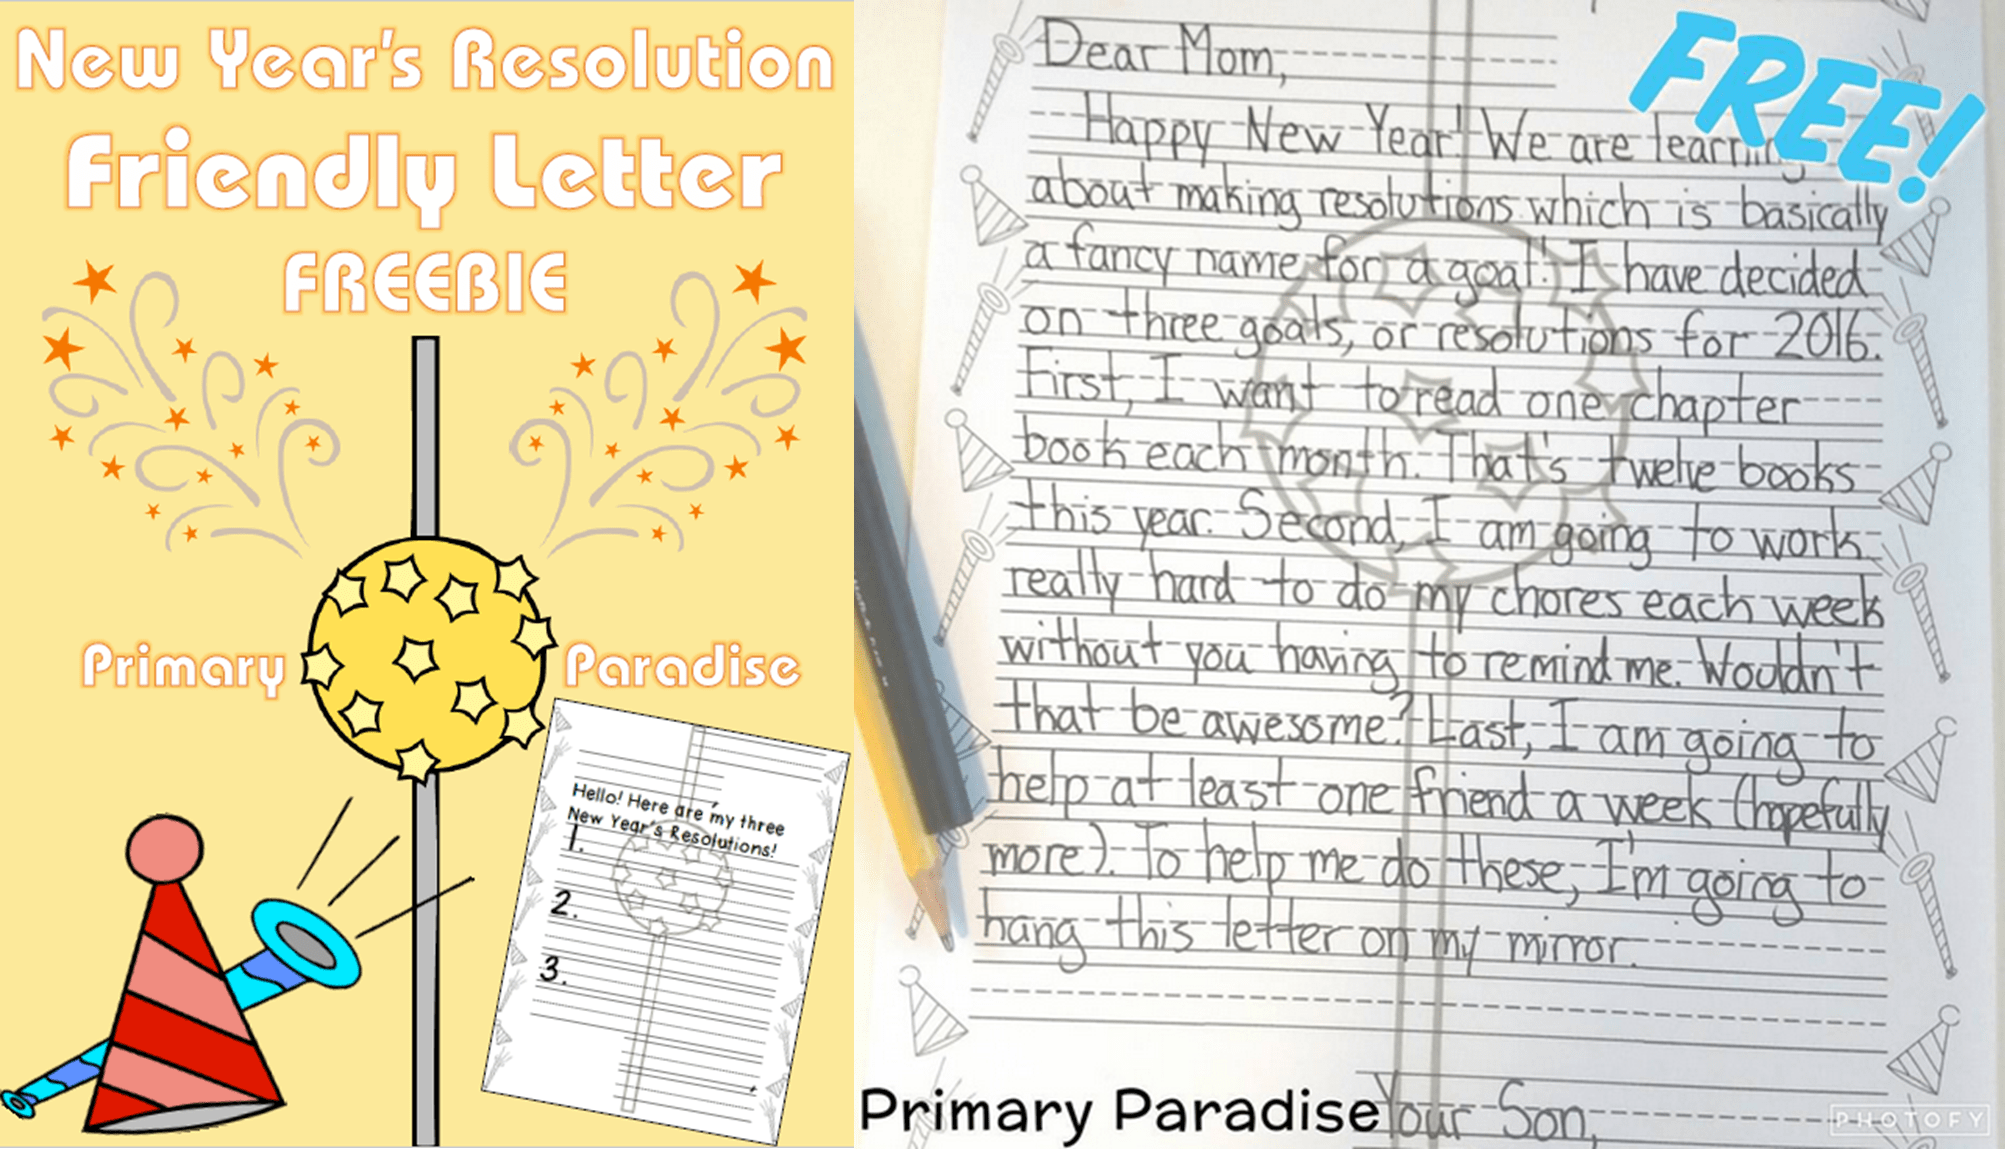 New Year's Resolution
Friendly Letter
FREEBIE
Primary Paradise
Hello! Here are my three
New Year's Resolutions!
1.
2.
3.
,
FREE!
Dear Mom,
Happy New Year! We are learning
about making resolutions which is basically
a fancy name for a goal! I have decided
on three goals, or resolutions for 2016.
First, I want to read one chapter
book each month. That's twelve books
this year. Second, I am going to work
really hard to do my chores each week
without you having to remind me. Wouldn't
that be awesome? Last, I am going to
help at least one friend a week (hopefully
more). To help me do these, I'm going to
hang this letter on my mirror.
Your Son,
Primary Paradise
PHOTOFY